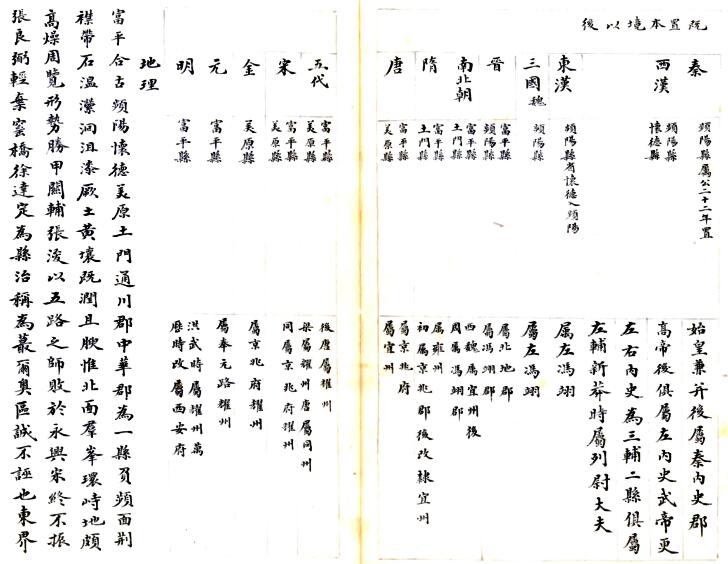 既置本境以後
秦
頻陽縣厲公二十二年置
始皇兼并後屬秦內史郡
西漢
頻陽縣
懷德縣
高帝後俱屬左內史武帝更
左右內史為三輔二縣俱屬
左輔新莽時屬列尉大夫
東漢
頻陽縣省懷德入頻陽
屬左馮翊
三國魏
頻陽縣
屬左馮翊
晉
富平縣
頻陽縣
屬北地郡
屬馮翊郡
南北朝
富平縣
土門縣
西魏屬宜州後
周屬馮翊郡
隋
富平縣
土門縣
屬雍州
初屬京兆郡後改隸宜州
唐
富平縣
美原縣
屬京兆府
屬宜州
五代
富平縣
美原縣
後唐屬耀州
梁屬耀州唐屬同州
宋
富平縣
美原縣
同屬京兆府耀州
金
美原縣
屬京兆府耀州
元
富平縣
屬奉元路耀州
明
富平縣
洪武時屬耀州萬
歷時改屬西安府
地理
富平合古頻陽懷德美原土門通川郡中華郡為一縣負頻面荆
襟帶石溫瀠洄沮漆厥土黄壤既潤且腴惟北面羣峯環峙地頗
高燥周覽形勢勝甲關輔張浚以五路之師敗於永興宋終不振
張良弼輕棄窑橋徐達定為縣治稱為蕞爾奥區誠不誣也東界